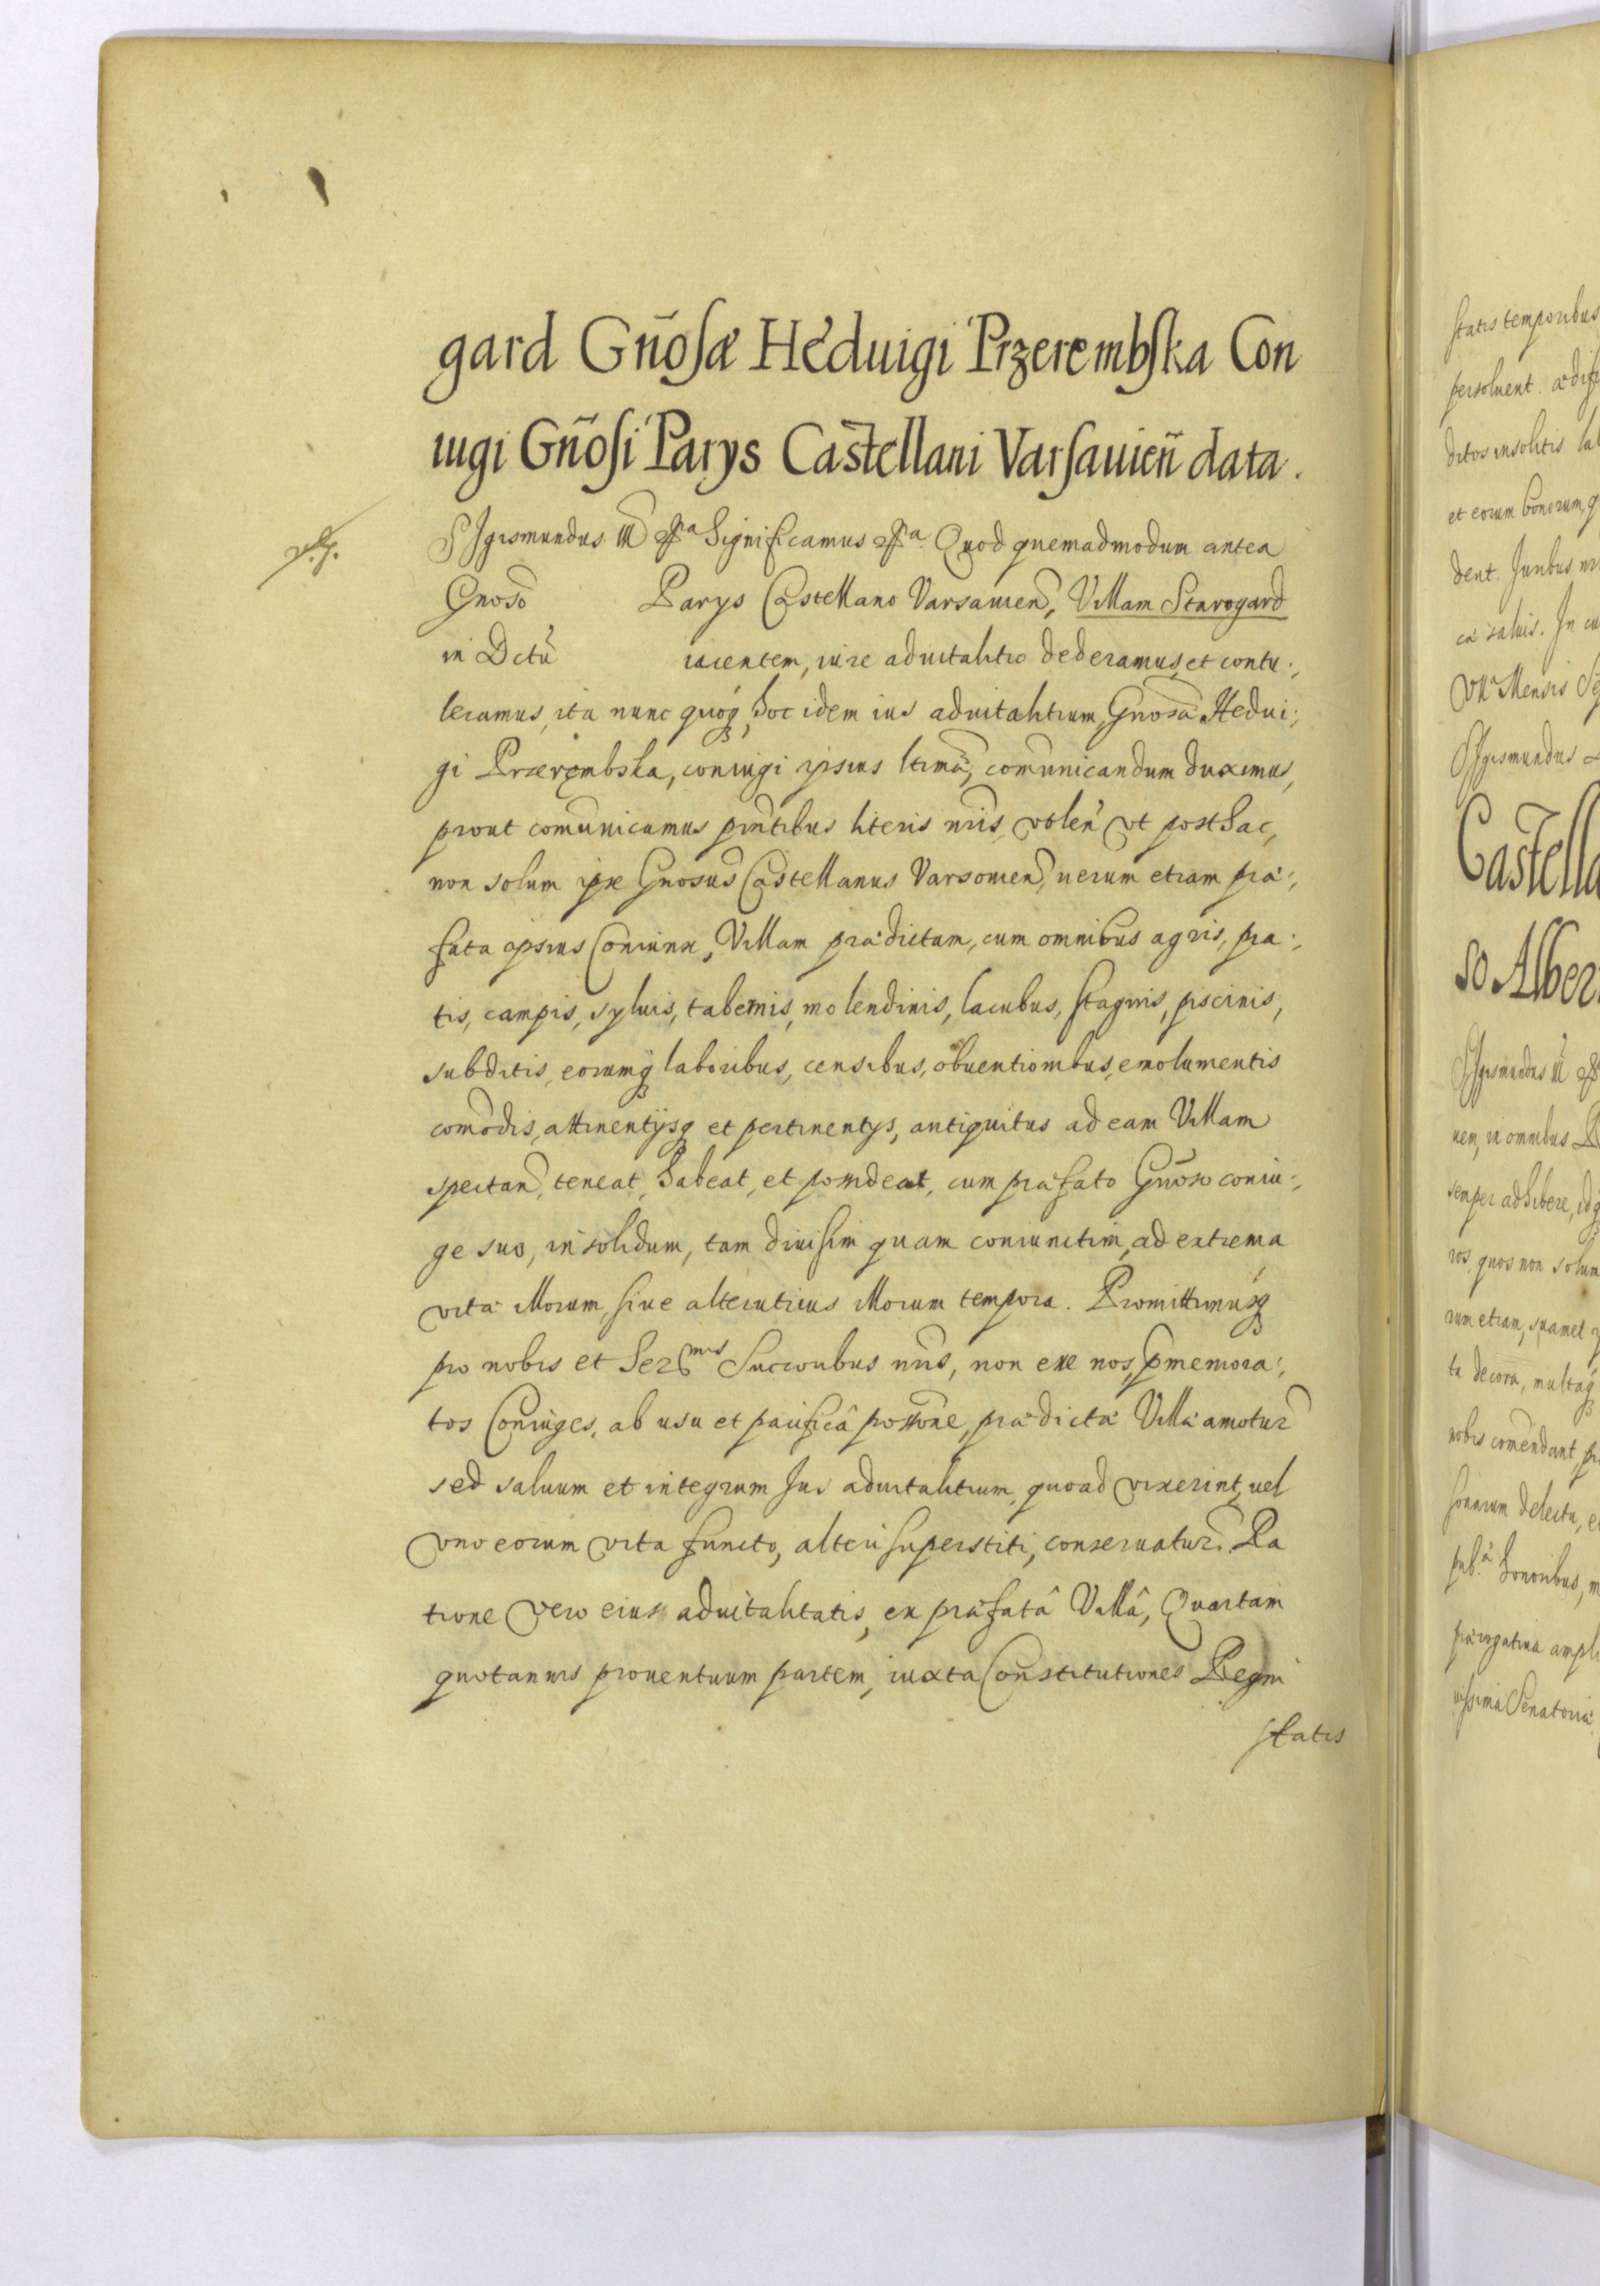 gard Gñosæ Heduigi Przerembska Con
iugi Gñosi Parys Castellani Varsauieñ data.
Sigismundus III Significamus Quod quemadmodum antea
Gnoso Parys Castellano Varsauien, Villam Starogard
in Dctũ iacentem, iure aduitalitio dederamus, et contu:,
leramus, ita nunc quoq hoc idem ius aduitalitium, Gnosa Hedui:,
gi Przerembska, coniugi ipsius ltima, comunicandum duximus,
prout comunicamus pntibus literis nris, volen vt posthac,
non solum ipse Gnosus Castellanus Varsouien, uerum etiam præ:,
fata ipsius Coniunx, Villam prædictam, cum omnibus agris, pra:,
tis, campis, syluis, tabernis, molendinis, lacubus, stagnis, piscinis,
subditis, eorumq laboribus, censibus, obuentionibus, emolumentis
comodis, attinentijsq et pertinentijs, antiquitus ad eam Villam
spectan, teneat, habeat, et possideat, cum præfato Gñoso coniu:,
ge suo, in solidum, tam diuisim quam coniunctim, ad extrema
vitæ illorum, siue alterutrius illorum tempora. Promittimusq
pro nobis et Ser<sup>mis</sup> Succoribus nris, non esse nos, pmemora:,
tos Coniuges, ab usu et pacificâ possone, prædictæ Villæ amotur
sed saluum et integrum Jus aduitalitium, quoad vixerint, uel
vno eorum vita functo, alteri superstiti, conseruatur. Ra
tione vero eius aduitalitatis, ex præfatâ Villâ, Quartam
quotannis prouentuum partem, iuxta Constitutiones Regni
statis
statis temporibus
persoluent. ædifi
ditos insolitis la
et eorum bonorum q
dent. Juribus
saluis. In cu
Mensis
Sigismundus
Castella
so Alber
Sigismundus III
uem, in omnibus
semper adhibere, idq
ros, quos non solum
rum etiam, suamet
ta decora, multaq
nobis comendant
delectu, e
honoribus, m
prærogatiua ampli
Senatoria